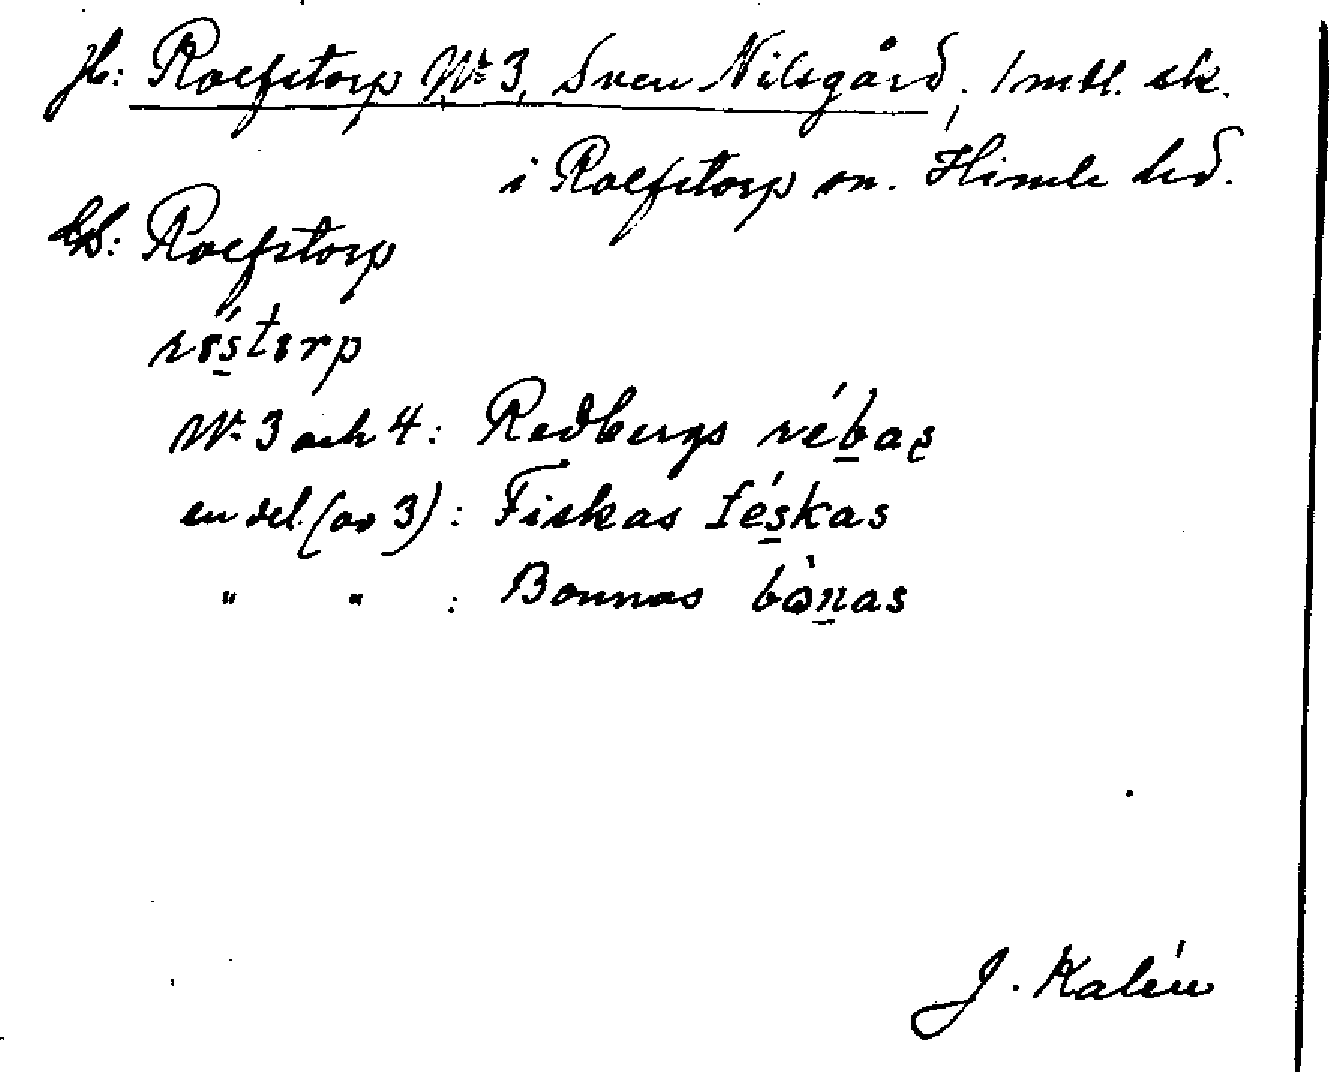 Jb: Rolfstorp Nr 3, Sven Nilsgård, 1 mtl. sk.
i Rolfstorp sn. Himle hd.
GS: Rolfstorp
Nr 3 och 4: Redbergs rébas
en del (av 3): Fiskas féskas
" " : Bonnas bònas
J. Kalén